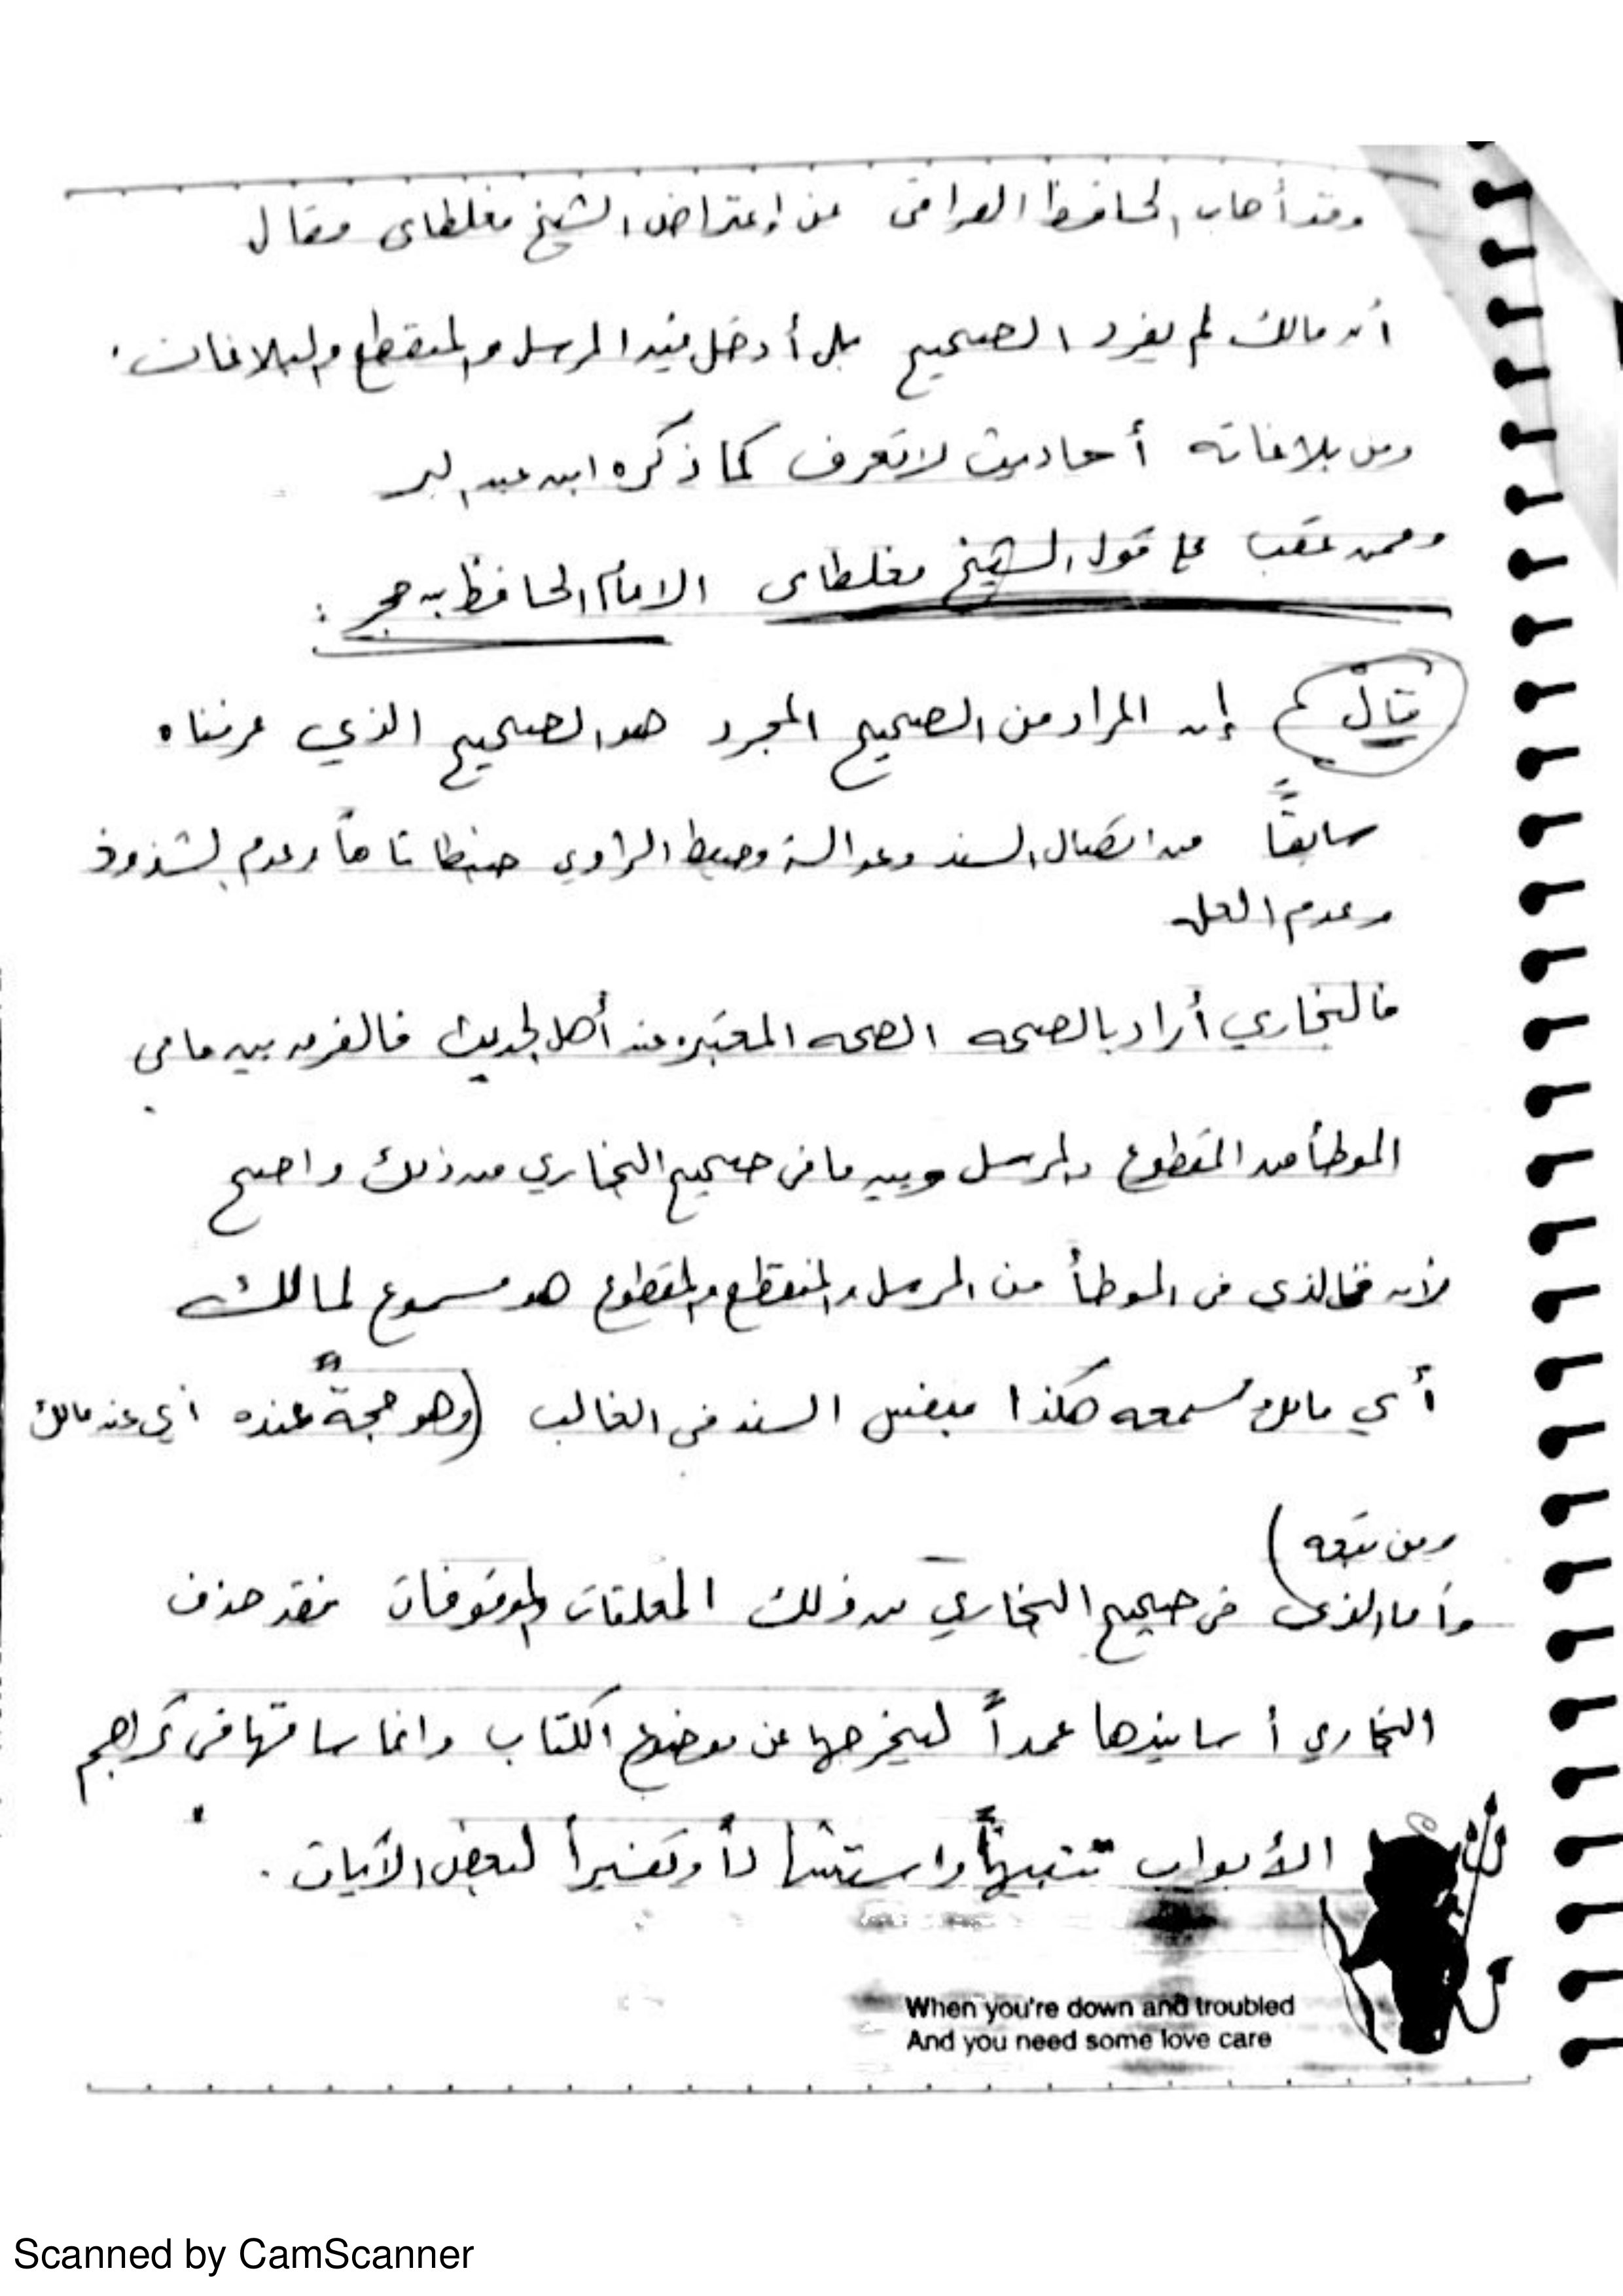 وقد أجاب الحافظ العراقى عن إعتراض الشيخ مغلطاى فقال
أن مالك لم يفرد الصحيح بل أدخل فيه المرسل والمنقطع والبلاغات .
ومن بلاغاته أحاديث لا تعرف كما ذكره ابن عبد البر
وممن عقب على قول الشيخ مغلطاى الامام الحافظ بن حجر :
قال إن المراد من الصحيح المجرد هو الصحيح الذي عرفناه
سابقاً من اتصال السند وعدالة وضبط الراوي ضبطا تاماً وعدم الشذوذ
وعدم العلل
فالبخاري أراد بالصحه الصحه المعتبره عند أهل الحديث فالفرق بين ما فى
الموطأ من المقطوع والمرسل وبين ما فى صحيح البخاري من ذلك واضح
لأن الذى فى الموطأ من المرسل والمنقطع والمقطوع هو مسموع لمالك
أي مالك سمعه هكذا بنفس السند فى الغالب (وهو حجةً عنده أي عند مالك
ومن تبعه )
وأما الذى فى صحيح البخاري من ذلك المعلقات والموقوفات فقد حذف
البخاري أسانيدها عمداً ليخرجها عن موضوع الكتاب وانما ساقها فى تراجم
الأبواب تنبيهاً واستشهاداً وتفسيراً لبعض الآيات .
When you're down and troubled
And you need some love care
Scanned by CamScanner